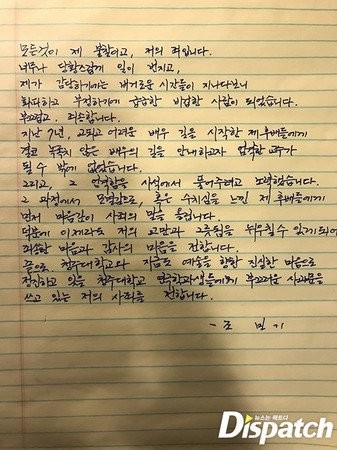 모든것이 제 불찰이고, 저의 죄입니다.
너무나 당황스럽게 일이 번지고,
제가 감당하기에는 버거운 시간들이 지나다보니
회피하고 부정하기에 급급한 비겁한 사람이 되었습니다.
부끄럽고, 죄송합니다.
지난 7년, 고되고 어려운 배우 길을 시작한 제 후배들에게
결코 녹록치 않은 배우의 길을 안내하고자 엄격한 교수가
될 수 밖에 없었습니다.
그리고, 그 엄격함을 사석에서 풀어주려고 노력했습니다.
그 과정에서 모멸감으로, 혹은 수치심을 느낀 제 후배들에게
먼저 마음깊이 사죄의 말을 올립니다.
덕분에 이제라도 저의 교만과 그릇됨을 뉘우칠 수 있게 되어
죄송한 마음과 감사의 마음을 전합니다.
끝으로 청주대학교와 지금도 예술을 향한 진실한 마음으로
정진하고 있을 청주대학교 연극학과생들에게 부끄러운 사과문을
쓰고 있는 저의 사죄를 전합니다.
- 조 민 기
뉴스는 팩트다
Dispatch